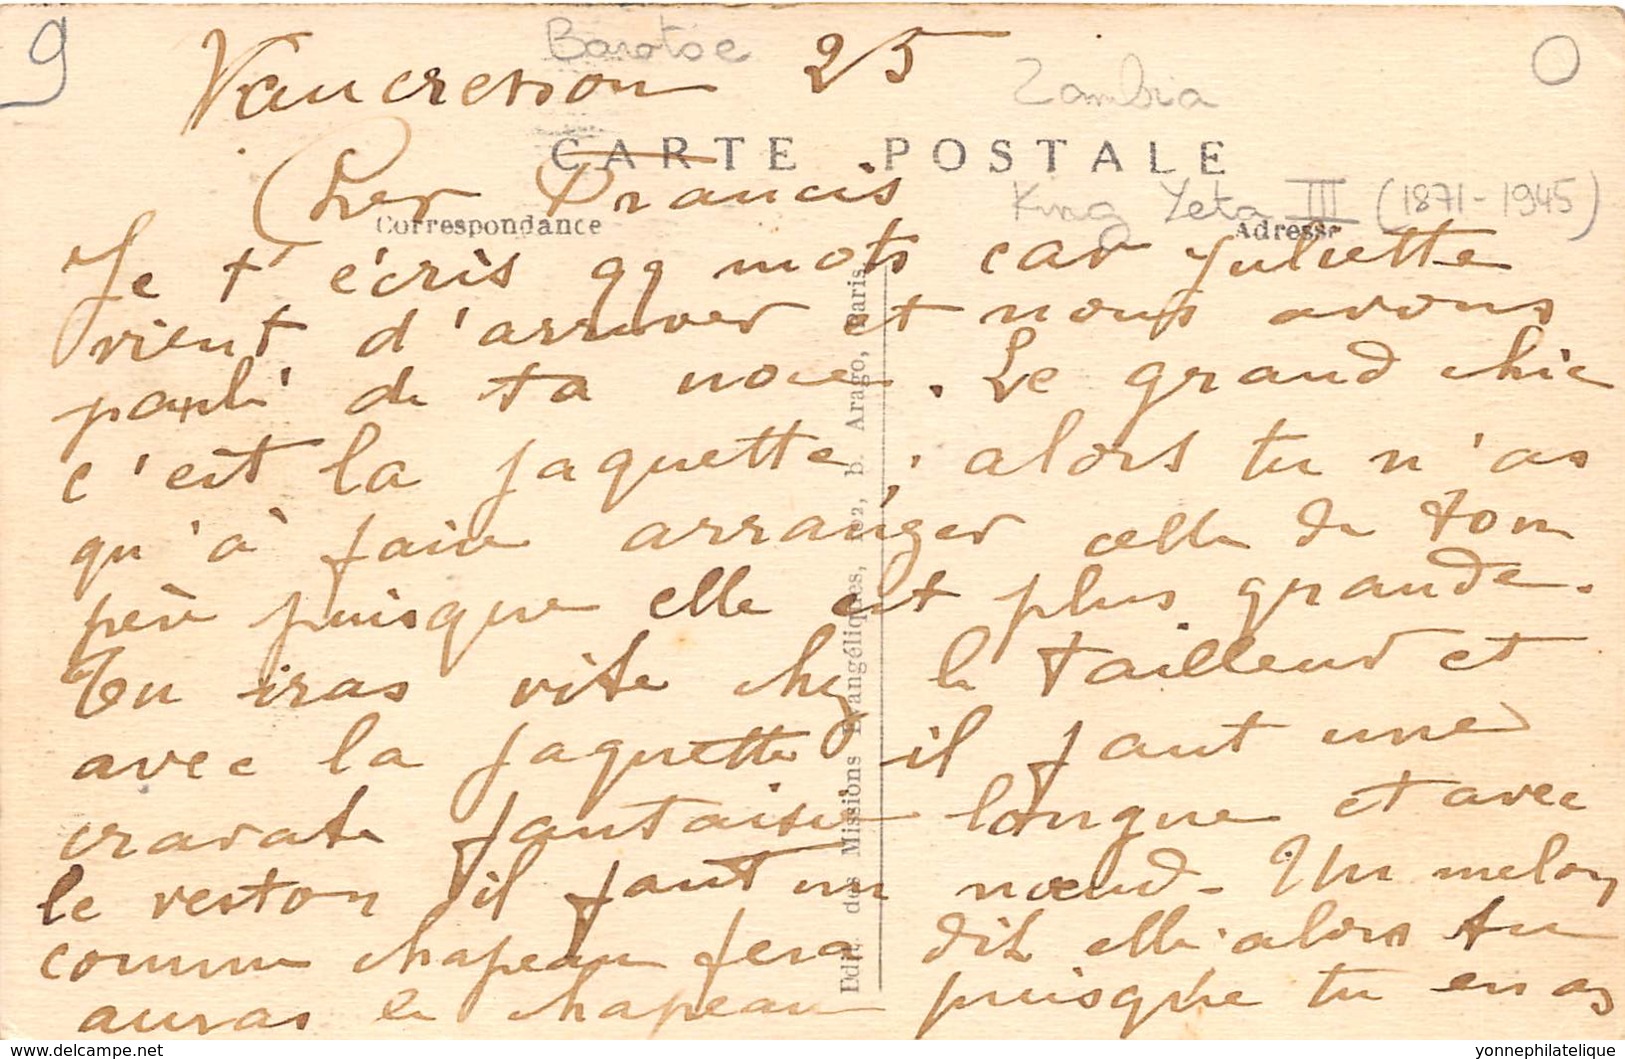 9
Barotse
Vaucresson 25
Zambia
CARTE POSTALE
Cher Francis
King Yeta III (1871-1945)
Correspondance
Adresse
Je t'écris qq mots car Juliette
vient d'arriver et nous avons
parlé de ta noce. Le grand chic
c'est la jaquette; alors tu n'as
qu'à faire arranger celle de ton
père puisque elle est plus grande.
Tu iras vite chez le tailleur et
avec la jaquette il faut une
cravate fantaisie longue et avec
le veston il faut un nœud - Un melon
comme chapeau fera dit elle alors tu
auras le chapeau puisque tu en as
Edit. des Missions Evangéliques, 102, b. Arago, Paris.
yonnephilatelie@outlook.com